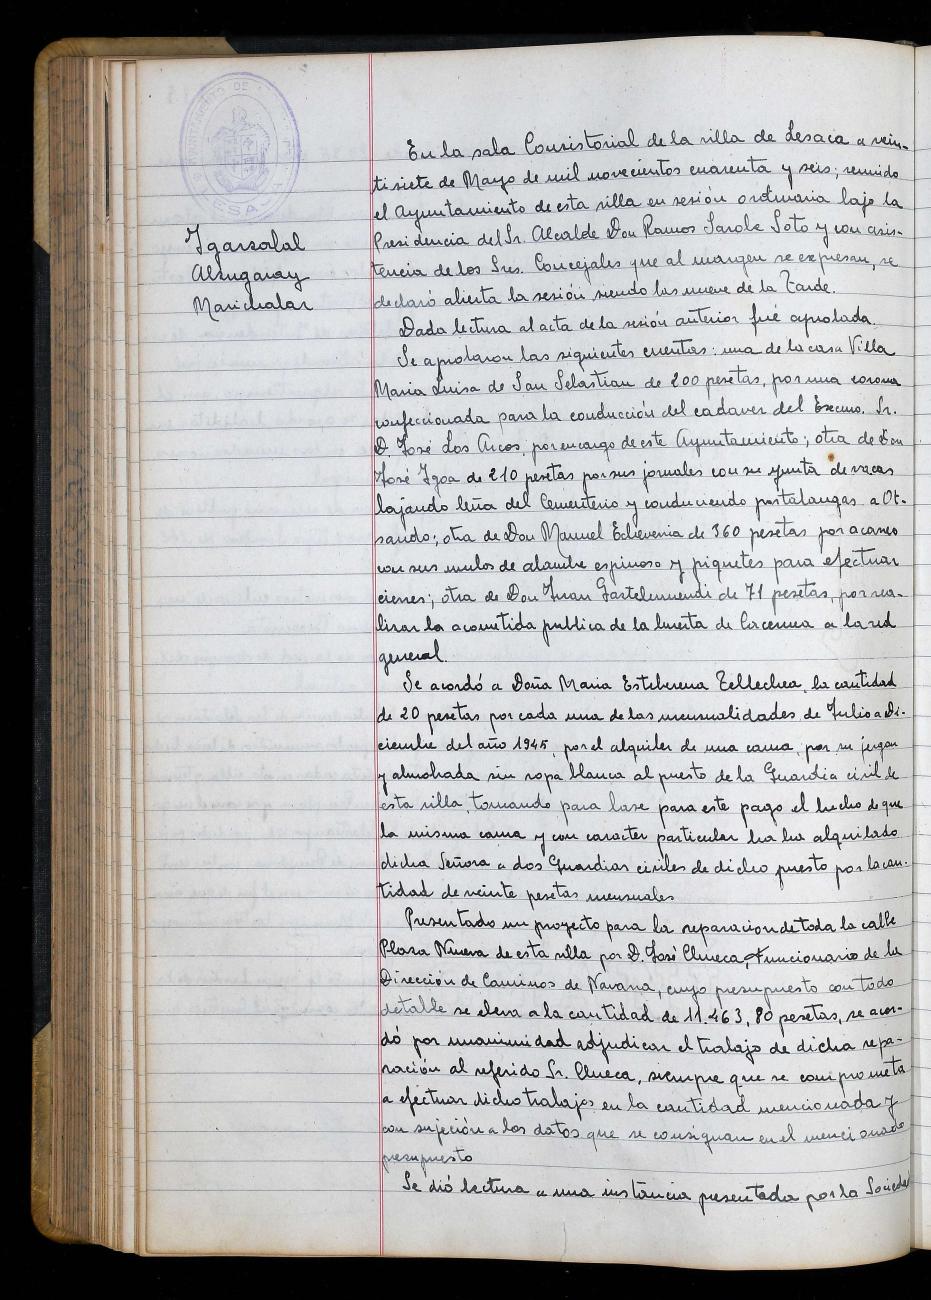 AYUNTAMIENTO DE
LESACA
Igarzabal
Alzugaray
Marichalar
En la sala Consistorial de la villa de Lesaca a vein-
tisiete de Mayo de mil novecientos cuarenta y seis; reunido
el Ayuntamiento de esta villa en sesión ordinaria bajo la
Presidencia del Sr. Alcalde Don Ramos Sarobe Soto y con asis-
tencia de los Sres. Concejales que al margen se expresan, se
declaró abierta la sesión siendo las nueve de la Tarde.
Dada lectura al acta de la sesión anterior fué aprobada.
Se aprobaron las siguientes cuentas: una de la casa Villa
Maria Luisa de San Sebastian de 200 pesetas, por una corona
confeccionada para la conducción del cadaver del Excmo. Sr.
D. José Los Arcos, por encargo de este Ayuntamiento; otra de Don
José Igoa de 210 pesetas por sus jornales con su yunta de vacas
bajando leña del Cementerio y conduciendo portalangas a Ot-
sando; otra de Don Manuel Echeverria de 360 pesetas por acarreo
con sus mulos de alambre espinoso y piquetes para efectuar
cierres; otra de Don Juan Gaztelumendi de 71 pesetas, por rea-
lizar la acometida publica de la huerta de a la red
general.
Se acordó a Doña Maria Esteberena Tellechea, la cantidad
de 20 pesetas por cada una de las mensualidades de Julio a Di-
ciembre del año 1945, por el alquiler de una cama, por su jergon
y almohada sin ropa blanca al puesto de la Guardia civil de
esta villa, tomando para base para este pago el hecho de que
la misma cama y con caracter particular ha ha alquilado
dicha Señora a dos Guardias civiles de dicho puesto por la can-
tidad de veinte pesetas mensuales
Presentado un proyecto para la reparacion de toda la calle
Plaza Nueva de esta villa por D. José Chueca, Funcionario de la
Dirección de Caminos de Navarra, cuyo presupuesto con todo
detalle se eleva a la cantidad de 11.463,80 pesetas, se acor-
dó por unanimidad adjudicar el trabajo de dicha repa-
ración al referido Sr. Chueca, siempre que se comprometa
a efectuar dicho trabajos en la cantidad mencionada y
con sujeción a los datos que se consignan en el mencionado
presupuesto
Se dió lectura a una instancia presentada por la Sociedad